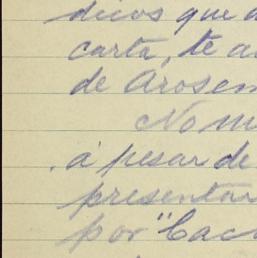 dicos que a
carta, te a
de Arosem
No m
a pesar de
presentar
por "Cac